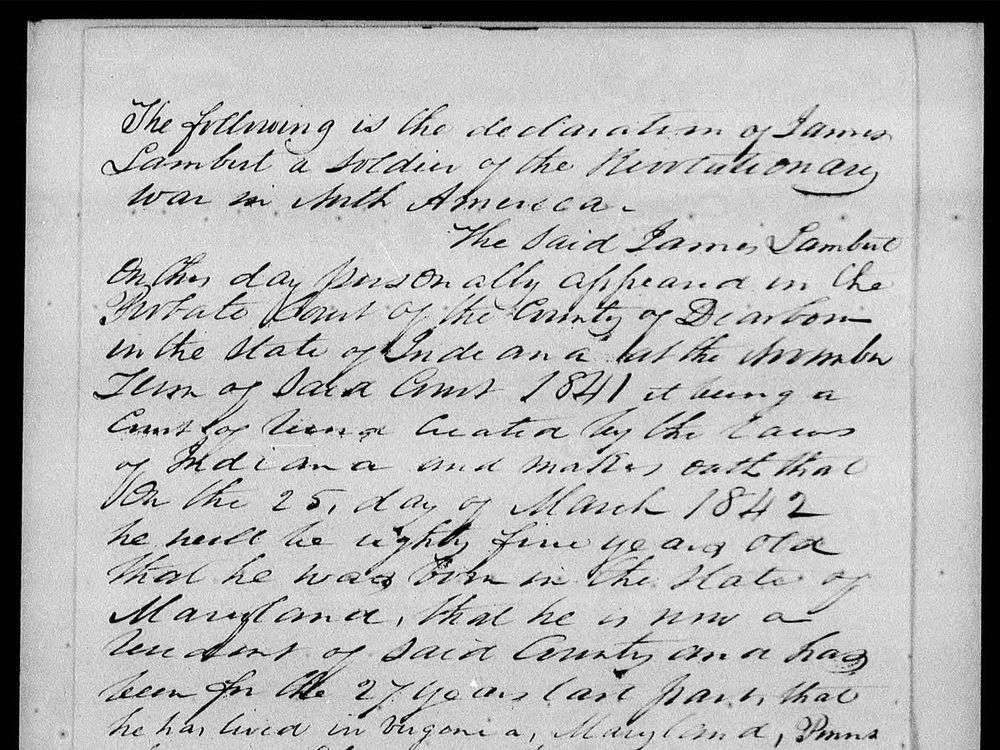 The following is the declaration of James
Lambert a soldier of the Revolutionary
war in North America.
The Said James Lambert
On this day personally appeared in the
Probate Court of the County of Dearborn
in the State of Indiana at the November
Term of Said Court 1841 it being a
Court of Record Created by the laws
of Indiana and makes oath that
On the 25, day of March 1842
he will be eighty five years old
that he was born in the State of
Maryland, that he is now a
resident of Said County and has
been for the 27 years last past, that
he has lived in virgonia, Maryland, Penns